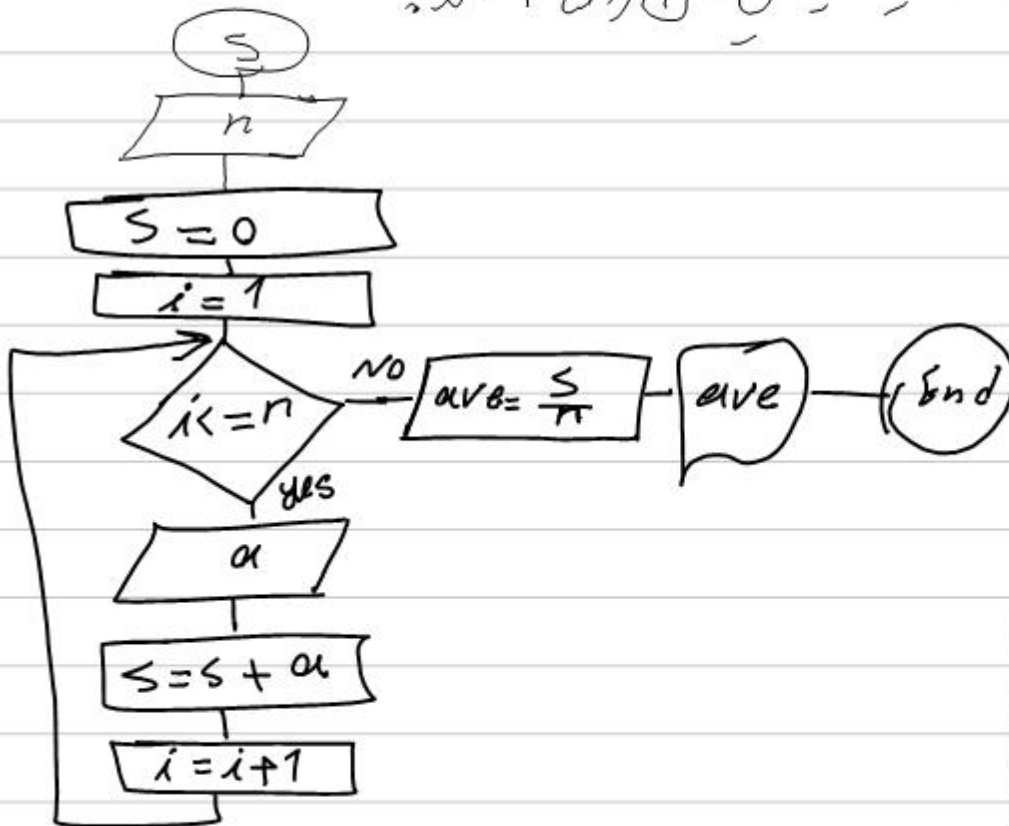 S
n
S = 0
i = 1
i <= n
NO
ave = S/n
ave
End
yes
a
S = S + a
i = i + 1